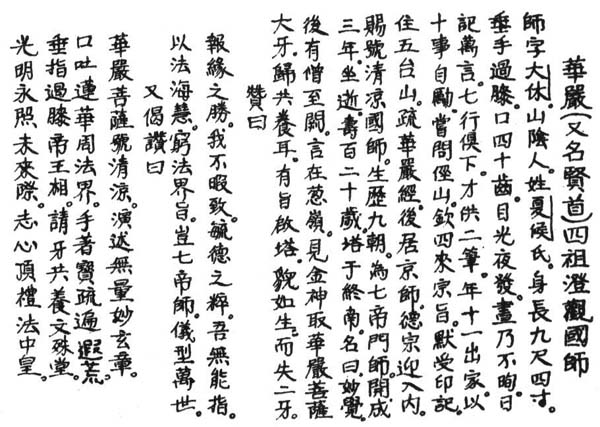 華嚴(又名賢首)四祖澄觀國師
師字大休。山陰人。姓夏候氏。身長九尺四寸。
垂手過膝。口四十齒。目光夜發。晝乃不眴。日
記萬言。七行俱下。才供二筆。年十一出家。以
十事自勵。嘗問徑山欽四來宗旨。默受印記。
住五台山。疏華嚴經。後居京師。德宗迎入內。
賜號清涼國師。生歷九朝。為七帝門師。開成
三年。坐逝。壽百二十歲。塔于終南。名曰妙覺。
後有僧至闕。言在葱嶺。見金神取華嚴菩薩
大牙。歸共養耳。有旨啟塔。貌如生。而失二牙。
贊曰
報緣之勝。我不暇致。毓德之粹。吾無能指。
以法海慧。窮法界旨。豈七帝師。儀型萬世。
又偈讚曰
華嚴菩薩號清涼。演述無量妙玄章。
口吐蓮華周法界。手著寶疏遍遐荒。
垂指過膝帝王相。請牙共養文殊堂。
光明永照未來際。志心頂禮法中皇。